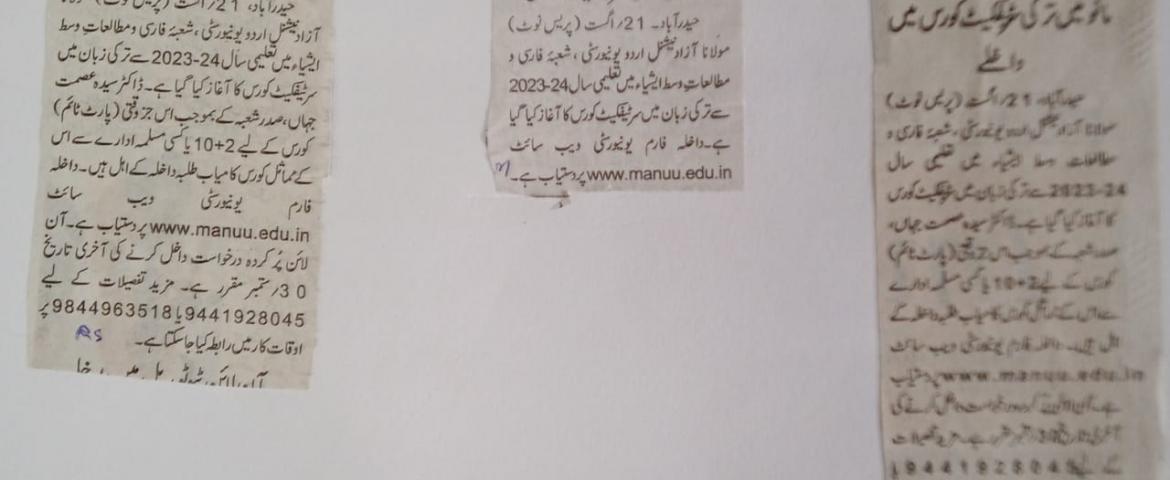 حیدرآباد، 21/اگست (پریس نوٹ)
آزاد نیشنل اردو یونیورسٹی، شعبۂ فارسی و مطالعاتِ وسط
ایشیاء میں تعلیمی سال 24-2023 سے ترکی زبان میں
سرٹیفکیٹ کورس کا آغاز کیا گیا ہے۔ ڈاکٹر سیدہ عصمت
جہاں، صدر شعبہ کے بموجب اس جزوقتی (پارٹ ٹائم)
کورس کے لیے 2+10 یا کسی مسلمہ ادارے سے اس
کے مماثل کورس کامیاب طلبہ داخلہ کے اہل ہیں۔ داخلہ
فارم یونیورسٹی ویب سائٹ
www.manuu.edu.in پر دستیاب ہے۔ آن
لائن پُر کردہ درخواست داخل کرنے کی آخری تاریخ
30/ستمبر مقرر ہے۔ مزید تفصیلات کے لیے
9441928045 یا 9844963518 پر
اوقات کار میں رابطہ کیا جاسکتا ہے۔
RS
حیدرآباد۔ 21/اگست (پریس نوٹ)
مولانا آزاد نیشنل اردو یونیورسٹی، شعبۂ فارسی و
مطالعات وسط ایشیاء میں تعلیمی سال 24-2023
سے ترکی زبان میں سرٹیفکیٹ کورس کا آغاز کیا گیا
ہے۔ داخلہ فارم یونیورسٹی ویب سائٹ
www.manuu.edu.in پر دستیاب ہے۔
مانو میں ترکی سرٹیفکیٹ کورس میں
داخلے
حیدرآباد، 21/اگست (پریس نوٹ)
مولانا آزاد نیشنل اردو یونیورسٹی، شعبۂ فارسی و
مطالعات وسط ایشیاء میں تعلیمی سال
2023-24 سے ترکی زبان میں سرٹیفکیٹ کورس
کا آغاز کیا گیا ہے۔ ڈاکٹر سیدہ عصمت جہاں،
صدر شعبہ کے بموجب اس جزوقتی (پارٹ ٹائم)
کورس کے لیے 2+10 یا کسی مسلمہ ادارے
سے اس کے مماثل کورس کامیاب طلبہ داخلہ کے
اہل ہیں۔ داخلہ فارم یونیورسٹی ویب سائٹ
www.manuu.edu.in پر دستیاب
ہے۔ آن لائن پُر کردہ درخواست داخل کرنے کی
آخری تاریخ 30/ستمبر مقرر ہے۔ مزید تفصیلات
کے لیے 9441928045